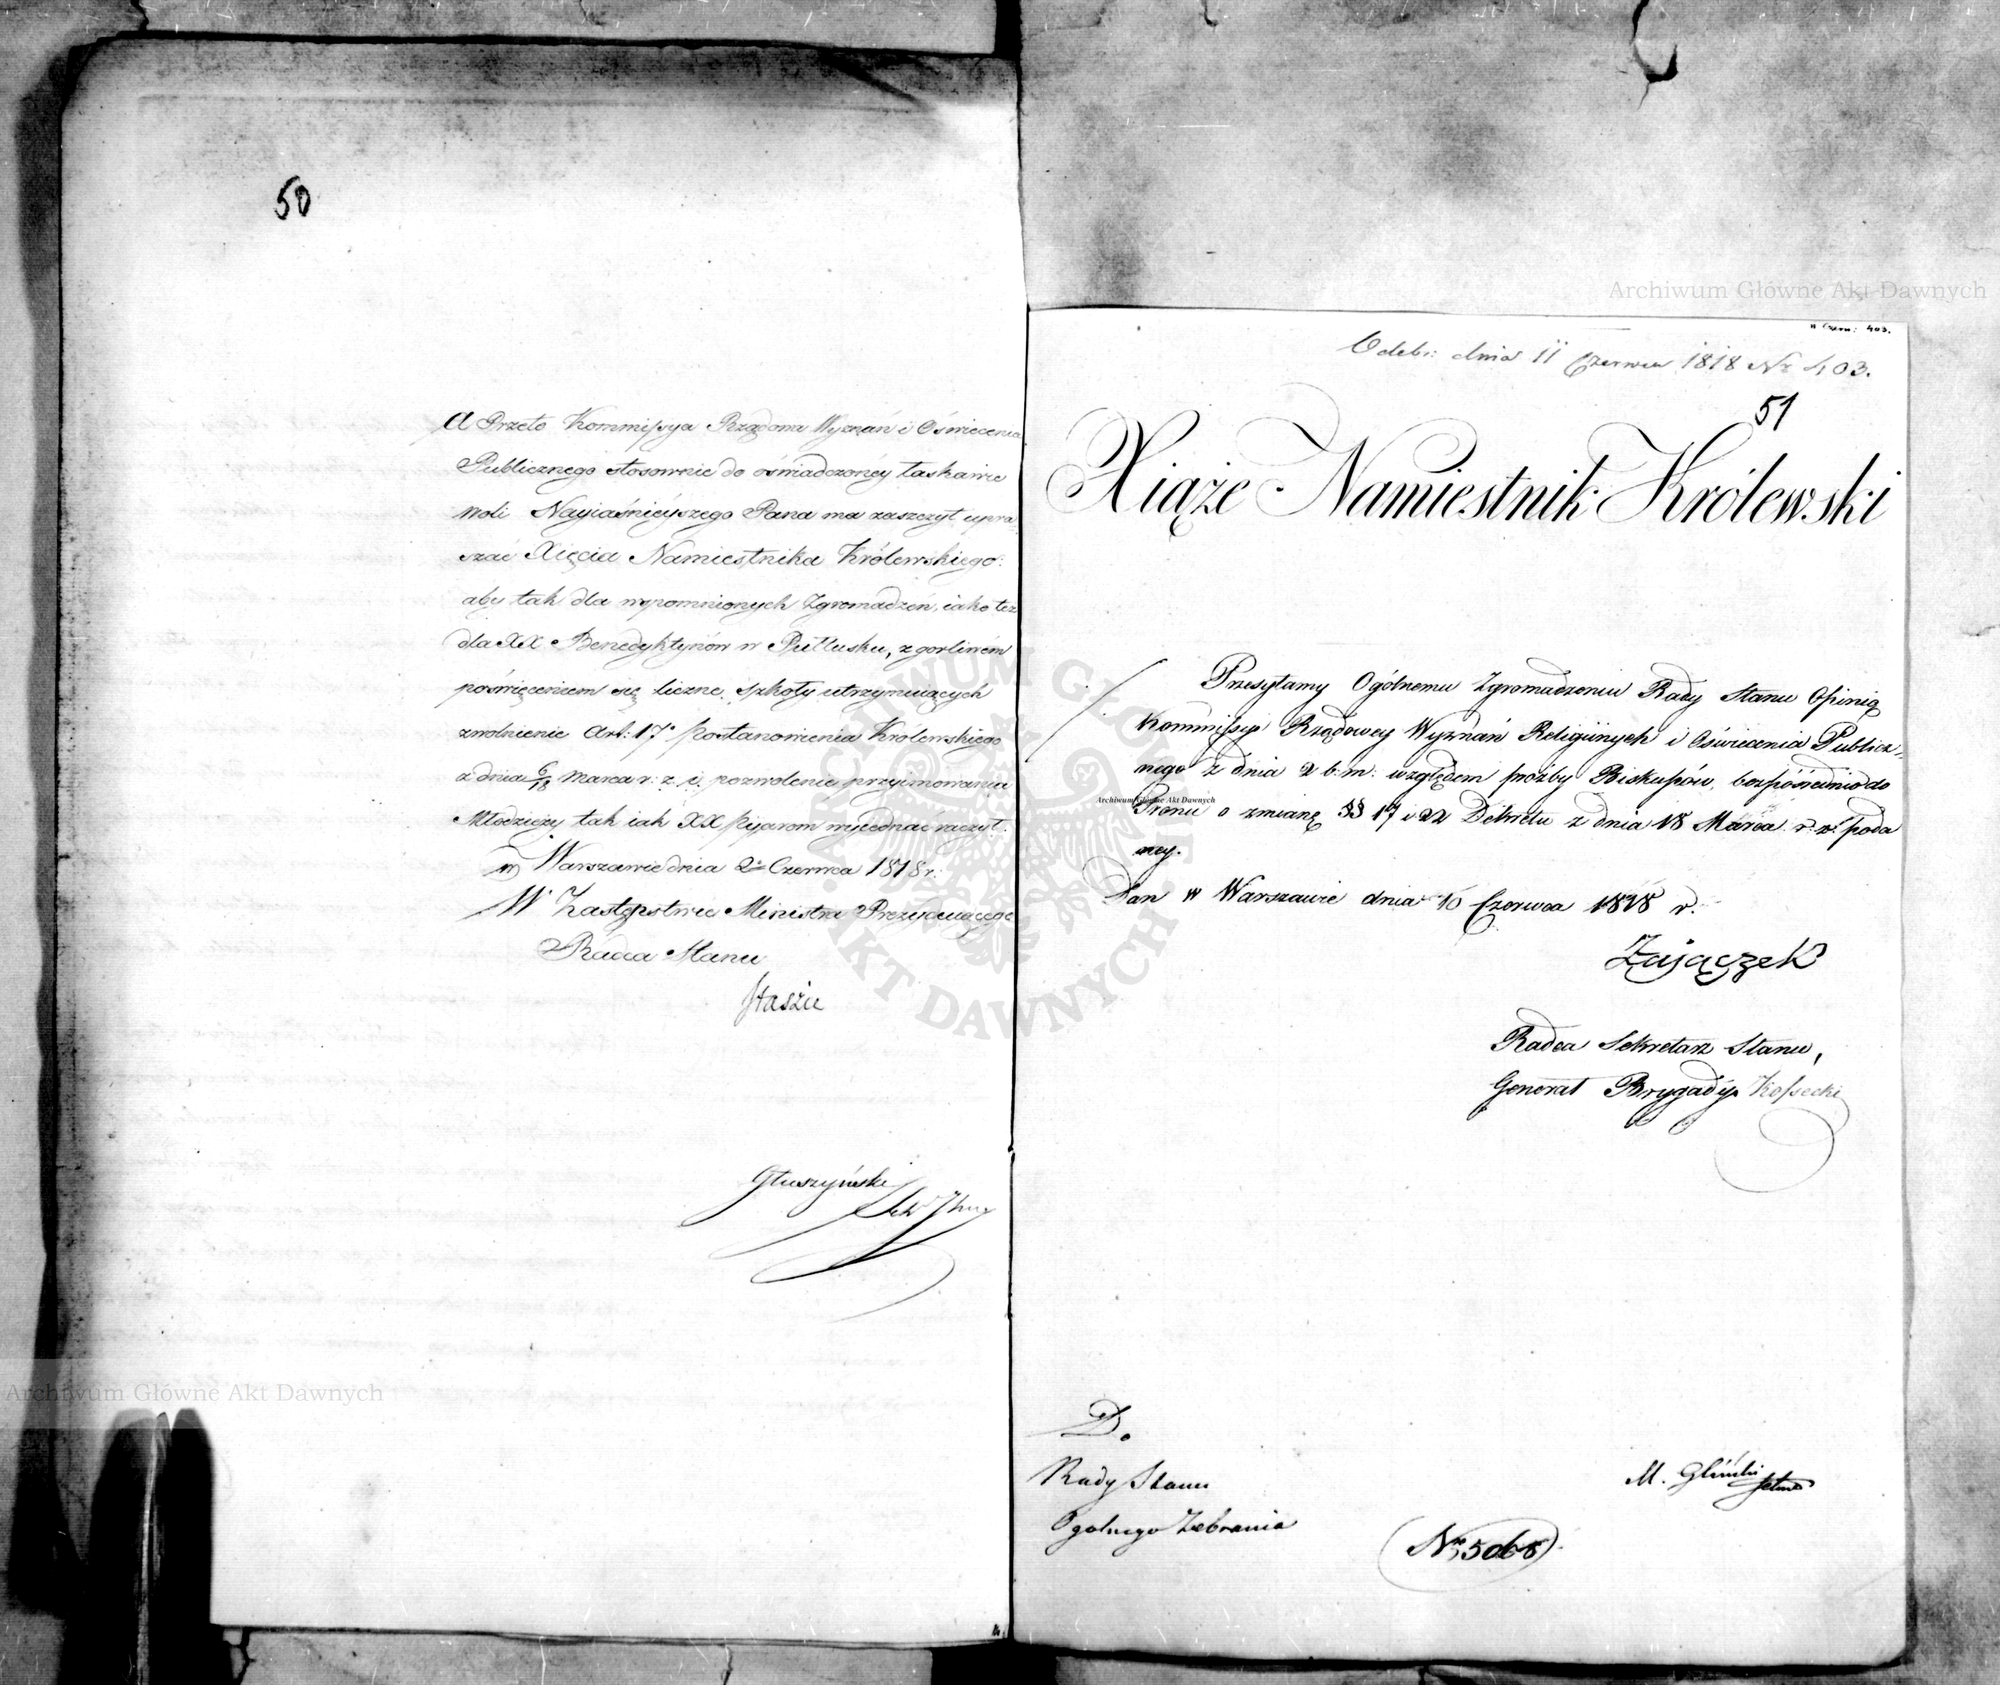 50
A Przeto Kommissya Rządowa Wyznań i Oświecenia
Publicznego stosownie do oświadczonéy łaskawie
woli Nayiaśnieyszego Pana ma zaszczyt upra
szać Xięcia Namiestnika Królewskiego:
aby tak dla wspomnionych Zgromadzeń, iako też
dla XX Benedyktynów w Pułtusku, z gorliwém
poświęceniem się liczne szkoły utrzymuiących
zwolnienie Art: 17º postanowienia Królewskiego
z dnia 6/18 Marca r: z. i pozwolenie przyimowania
Młodzieży tak iak XX Pijarom wyiednać raczył.
w Warszawie dnia 2º Czerwca 1818 r.
W Zastępstwie Ministra Prezyduiącego
Radca Stanu
Staszic
Głuszyński
Archiwum Główne Akt Dawnych
Archiwum Główne Akt Dawnych
11 Czerw: 403.
Odebr: dnia 11 Czerwca 1818 Nr 403.
51
Xiąże Namiestnik Królewski
Przesyłamy Ogólnemu Zgromadzeniu Rady Stanu Opinią
Kommissyi Rządowey Wyznań Religiinych i Oświecenia Publicz=
nego z dnia 2 b: m: względem proźby Biskupów, bezpośrednio do
Archiwum Główne Akt Dawnych
Tronu o zmianę §§ 17 i 22 Dekretu z dnia 18 Marca r: z: poda
ney.
Dan w Warszawie dnia 10 Czerwca 1818 r.
Zajączek
Radca Sekretarz Stanu,
Generał Brygady Kossecki
ARCHIWUM GŁÓWNE AKT DAWNYCH
D.
Rady Stanu
Ogolnego Zebrania
M. Gliński
Nr 5068